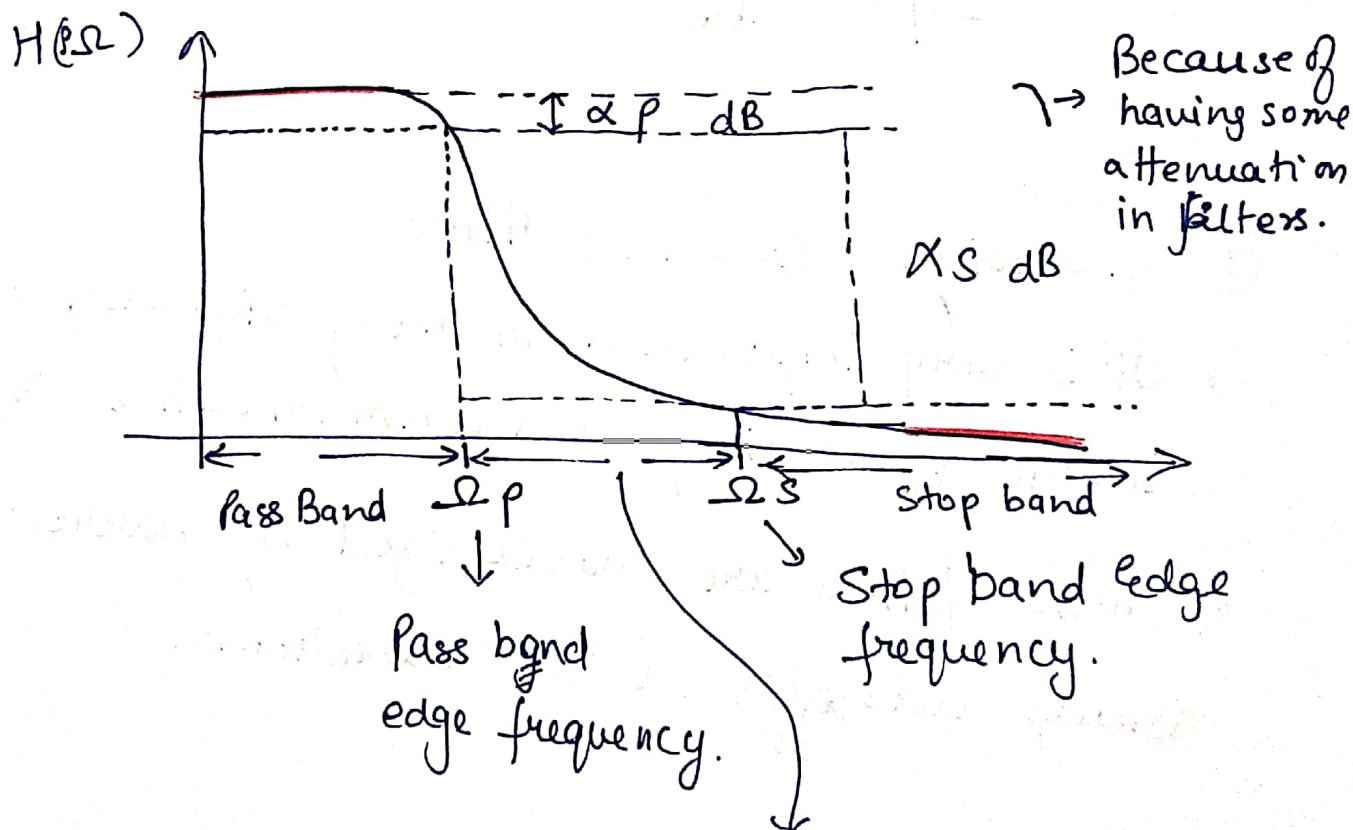 H(jΩ)
αp dB
Because of
having some
attenuation
in filters.
αs dB
Pass Band
Ωp
Ωs
Stop band
Pass band
edge frequency.
Stop band Edge
frequency.